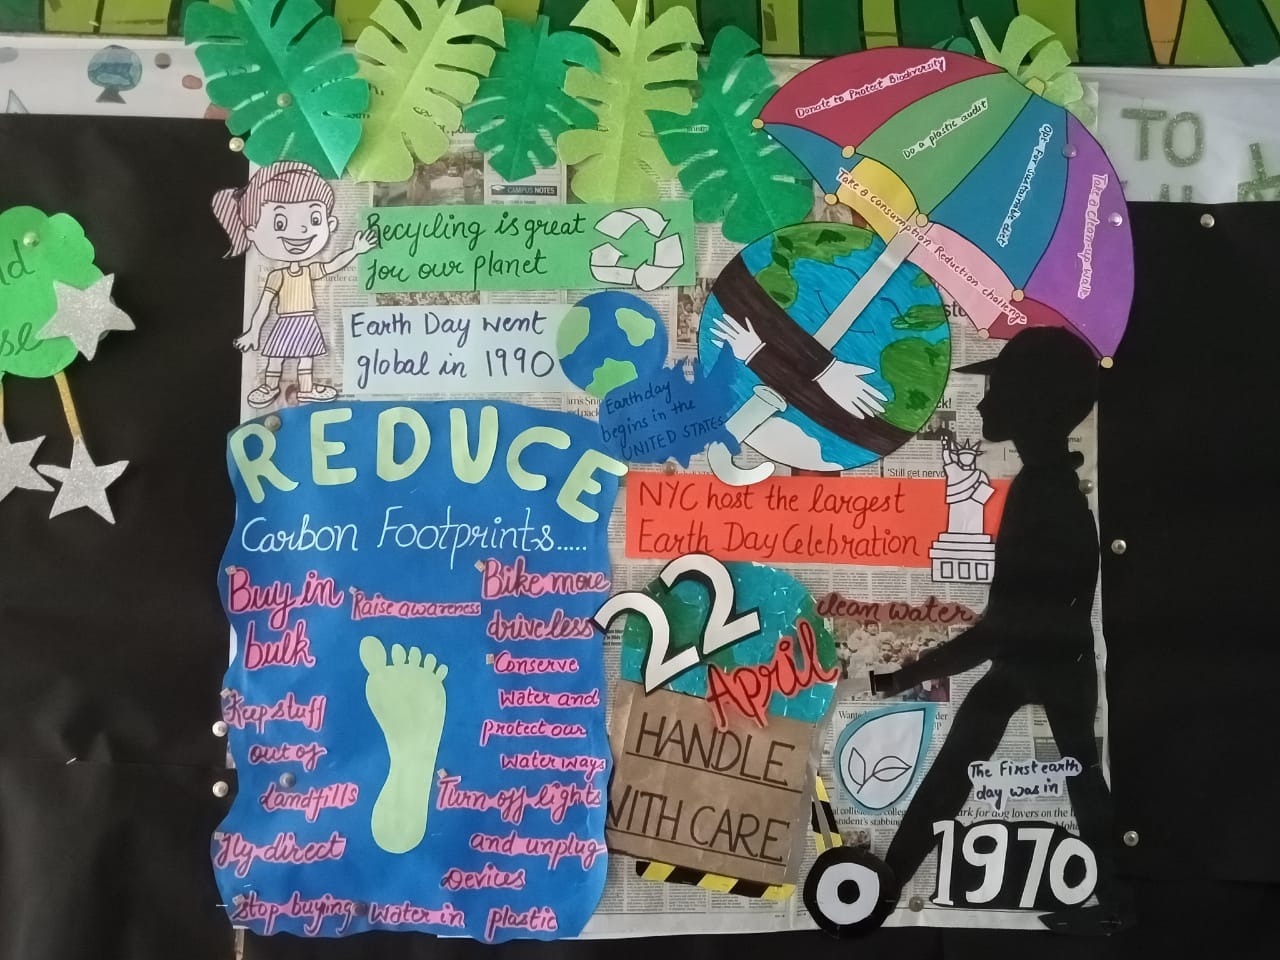 TO
Donate to Protect Biodiversity
Do a plastic audit
Opt for sustainable diet
Take a clean-up walk
Take a consumption Reduction challenge
CAMPUS NOTES
Recycling is great
for our planet
Earth Day went
global in 1990
Earth day
begins in the
UNITED STATES
REDUCE
Carbon Footprints.....
Buy in
bulk
Raise awareness
Bike more
drive less
Conserve
water and
protect our
water ways
Keep stuff
out of
landfills
Turn off lights
and unplug
Devices
fly direct
Stop buying water in plastic
NYC host the largest
Earth Day Celebration
'Still get nerv
clean water
22
April
HANDLE
WITH CARE
The First earth
day was in
1970